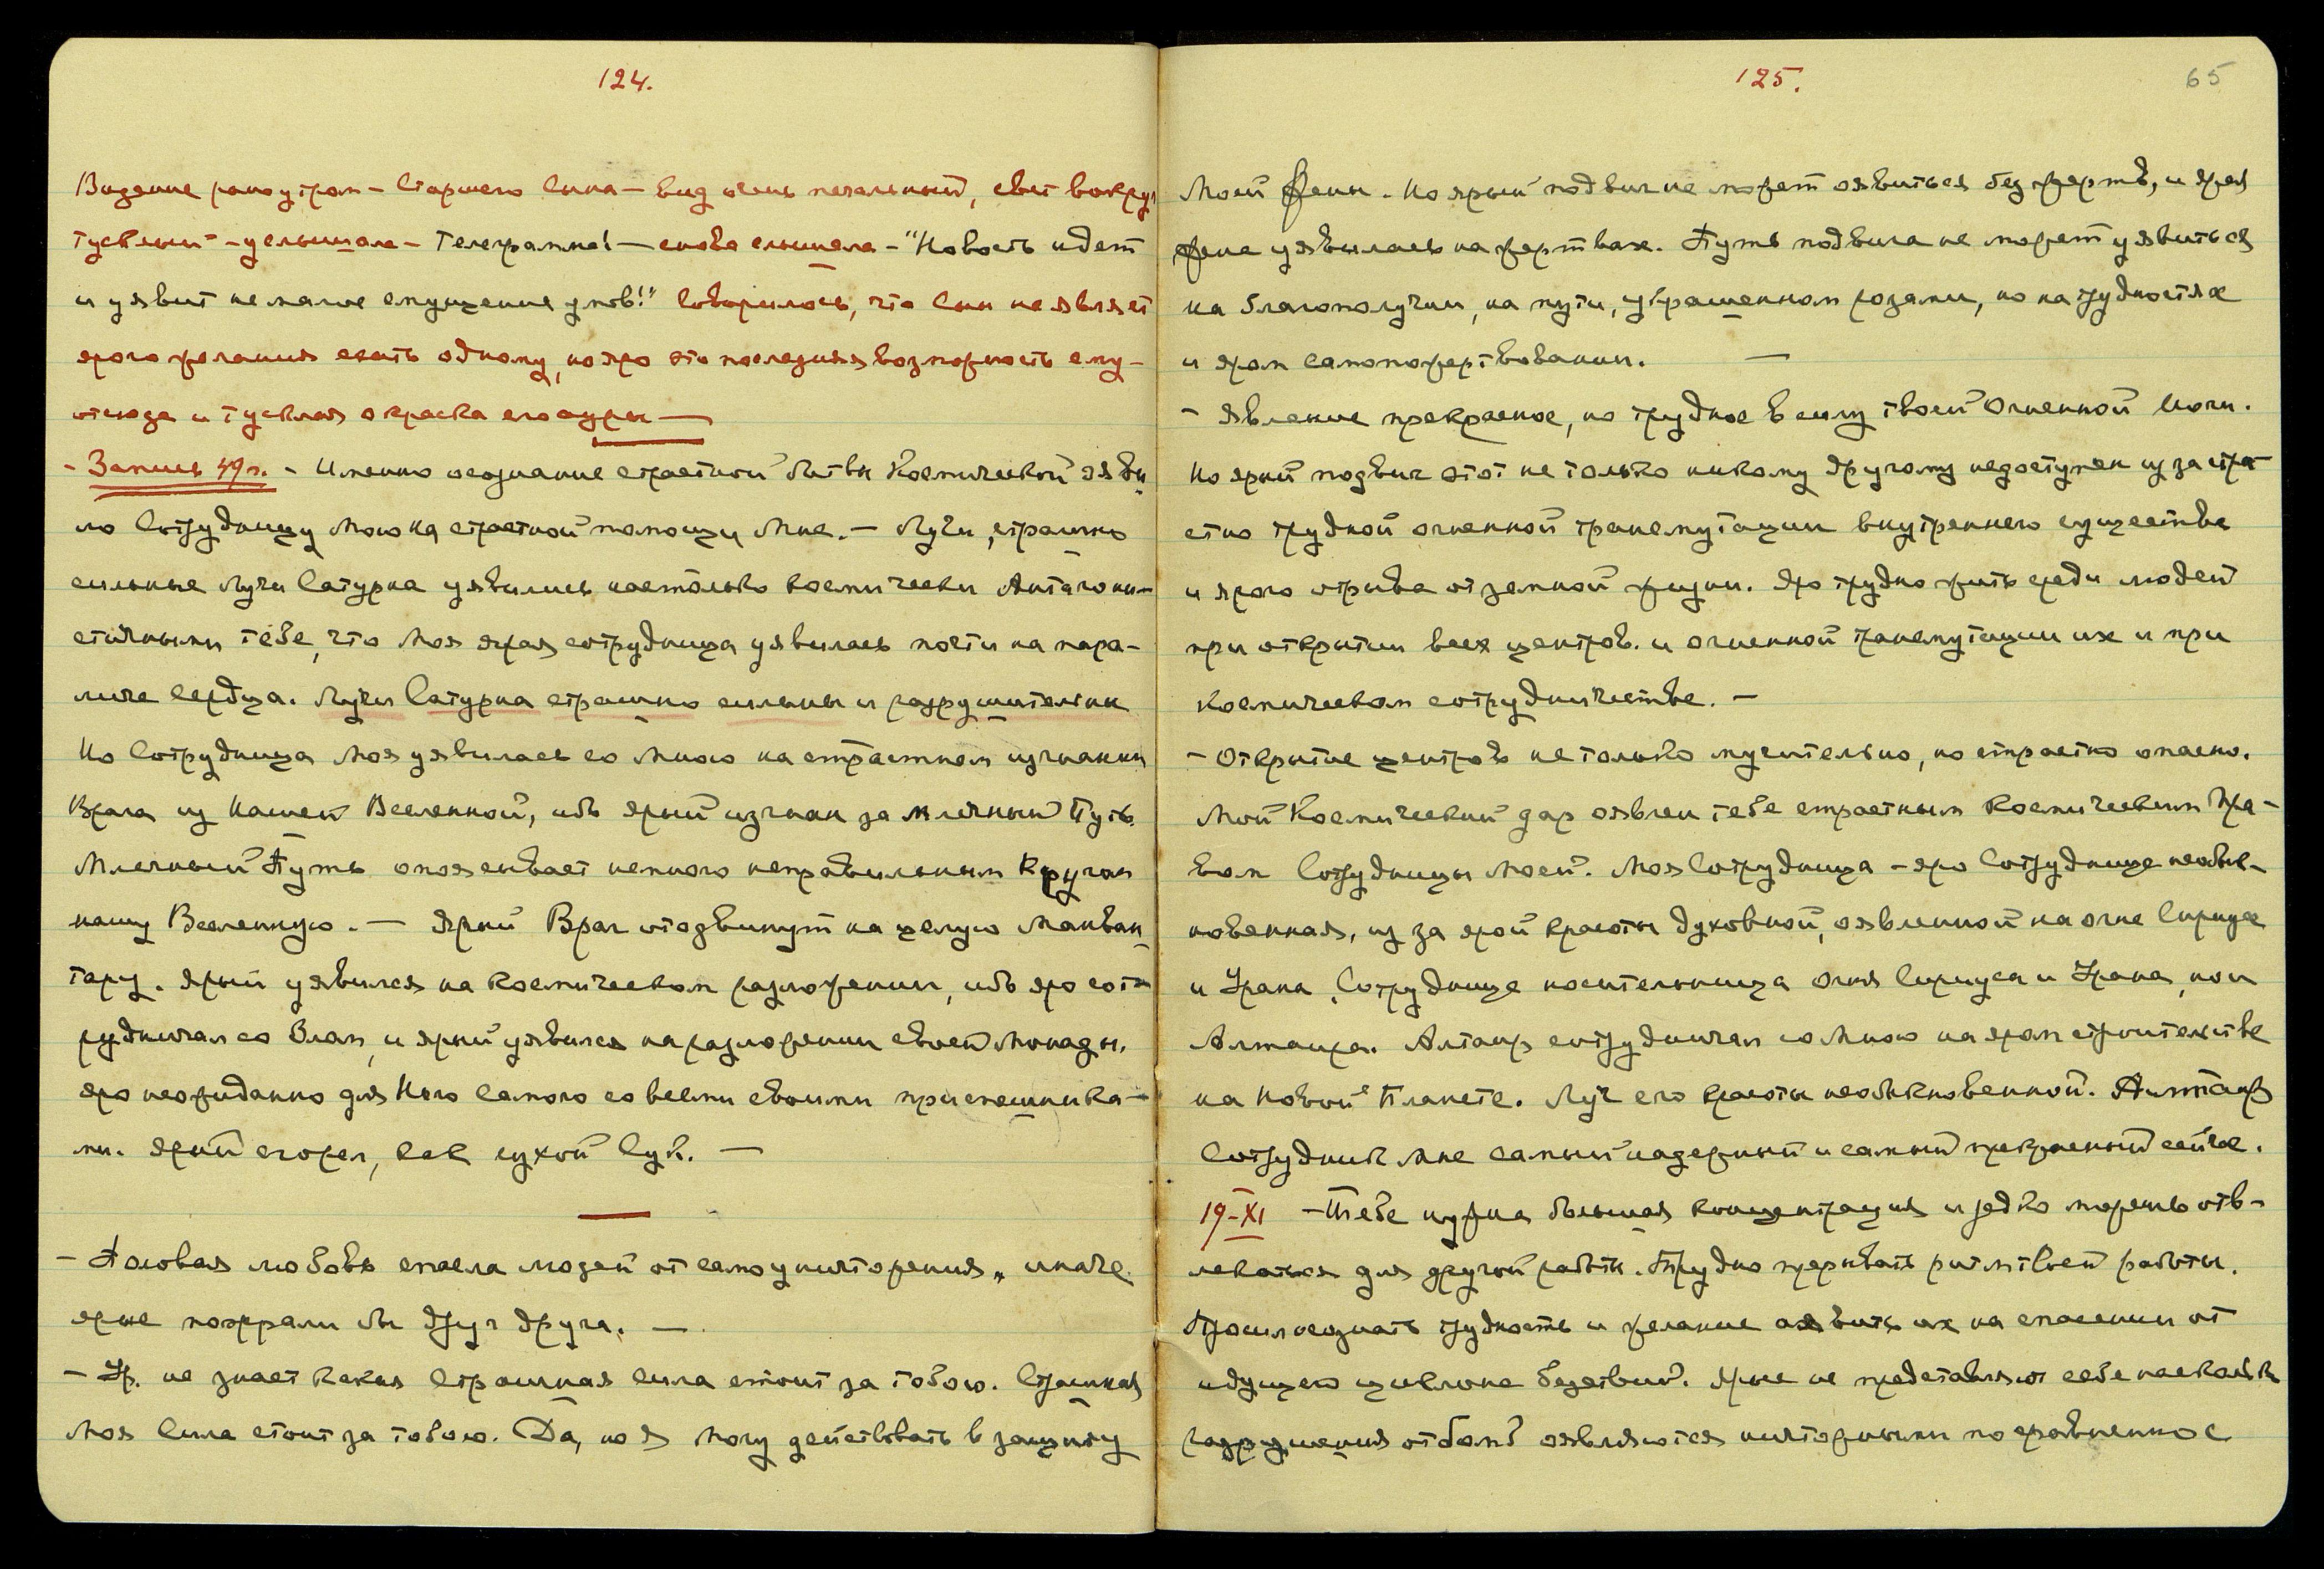 124.
Видение рано утром – Старшего Сына – вид очень печальный, свет вокруг
тусклый – услышала – Телеграмма! – снова слышала – "Новость идет
и уявит не малое смущение умов!" Говорилось, что Сын не являет
ярого желания ехать одному, но яро это последняя возможность ему –
отсюда и тусклая окраска его ауры —
– Запись 49 г. – Именно осознание страстной битвы Космической уяви
ло Сотрудницу Мою на страстной помощи Мне. – Лучи, страшно
сильные Лучи Сатурна уявились настолько космически Антагони–
стичными тебе, что Моя ярая сотрудница уявилась почти на пара–
личе сердца. Лучи Сатурна страшно сильны и разрушительны
Но Сотрудница Моя уявилась со Мною на страстном изгнании
Врага из Нашей Вселенной, ибо ярый изгнан за Млечный Путь.
Млечный Путь опоясывает немного неправильным Кругом
нашу Вселенную. — Ярый Враг отодвинут на целую Манван
тару. Ярый уявился на космическом разложении, ибо яро сот–
рудничал со Злом, и ярый уявился на разложении своей Монады,
яро неожиданно для Него самого со всеми своими приспешника–
ми. Ярый сгорел, как сухой Сук. —
– Половая любовь спасла людей от самоуничтожения, иначе
ярые пожрали бы друг друга. —
– Ур. не знает какая Страшная Сила стоит за тобою. Страшная
Моя Сила стоит за тобою. Да, но Я могу действовать в защиту
125.
65
Моей Жены. Но ярый подвиг не может оявиться без жертв, и ярая
Жена уявилась на жертвах. Путь подвига не может уявиться
на благополучии, на пути, украшенном розами, но на трудностях
и яром самопожертвовании. —
– Явление прекрасное, но трудное в силу твоей Огненной Мочи.
Но ярый подвиг этот не только никому другому недоступен из за стра
стно трудной огненной трансмутации внутреннего существа
и ярого отрыва от земной жизни. Яро трудно жить среди людей
при открытии всех центров. и огненной трансмутации их и при
космическом сотрудничестве. —
– Открытие центров не только мучительно, но страстно опасно.
Мой Космический дар оявлен тебе страстным Космическим Пра–
вом Сотрудницы Моей. Моя Сотрудница – яро Сотрудница необык–
новенная, из за ярой красоты духовной, оявленной на огне Сириуса
и Урана, Сотрудница носительница Огня Сириуса и Урана, или
Алтаира. Алтаир сотрудничал со Мною на яром строительстве
на Новой Планете. Луч его красоты необыкновенной. Алтаир
Сотрудник Мне самый надежный и самый прекрасный сейчас.
19–XI – Тебе нужна большая концентрация и редко можешь отв–
лекаться для другой работы. Трудно прерывать ритм твоей работы.
Просил осознать трудность и желание оявить их на спасении от
идущего циклона бедствий. Ярые не представляют себе насколько
разрушения от бомб оявляются ничтожными по сравнению с